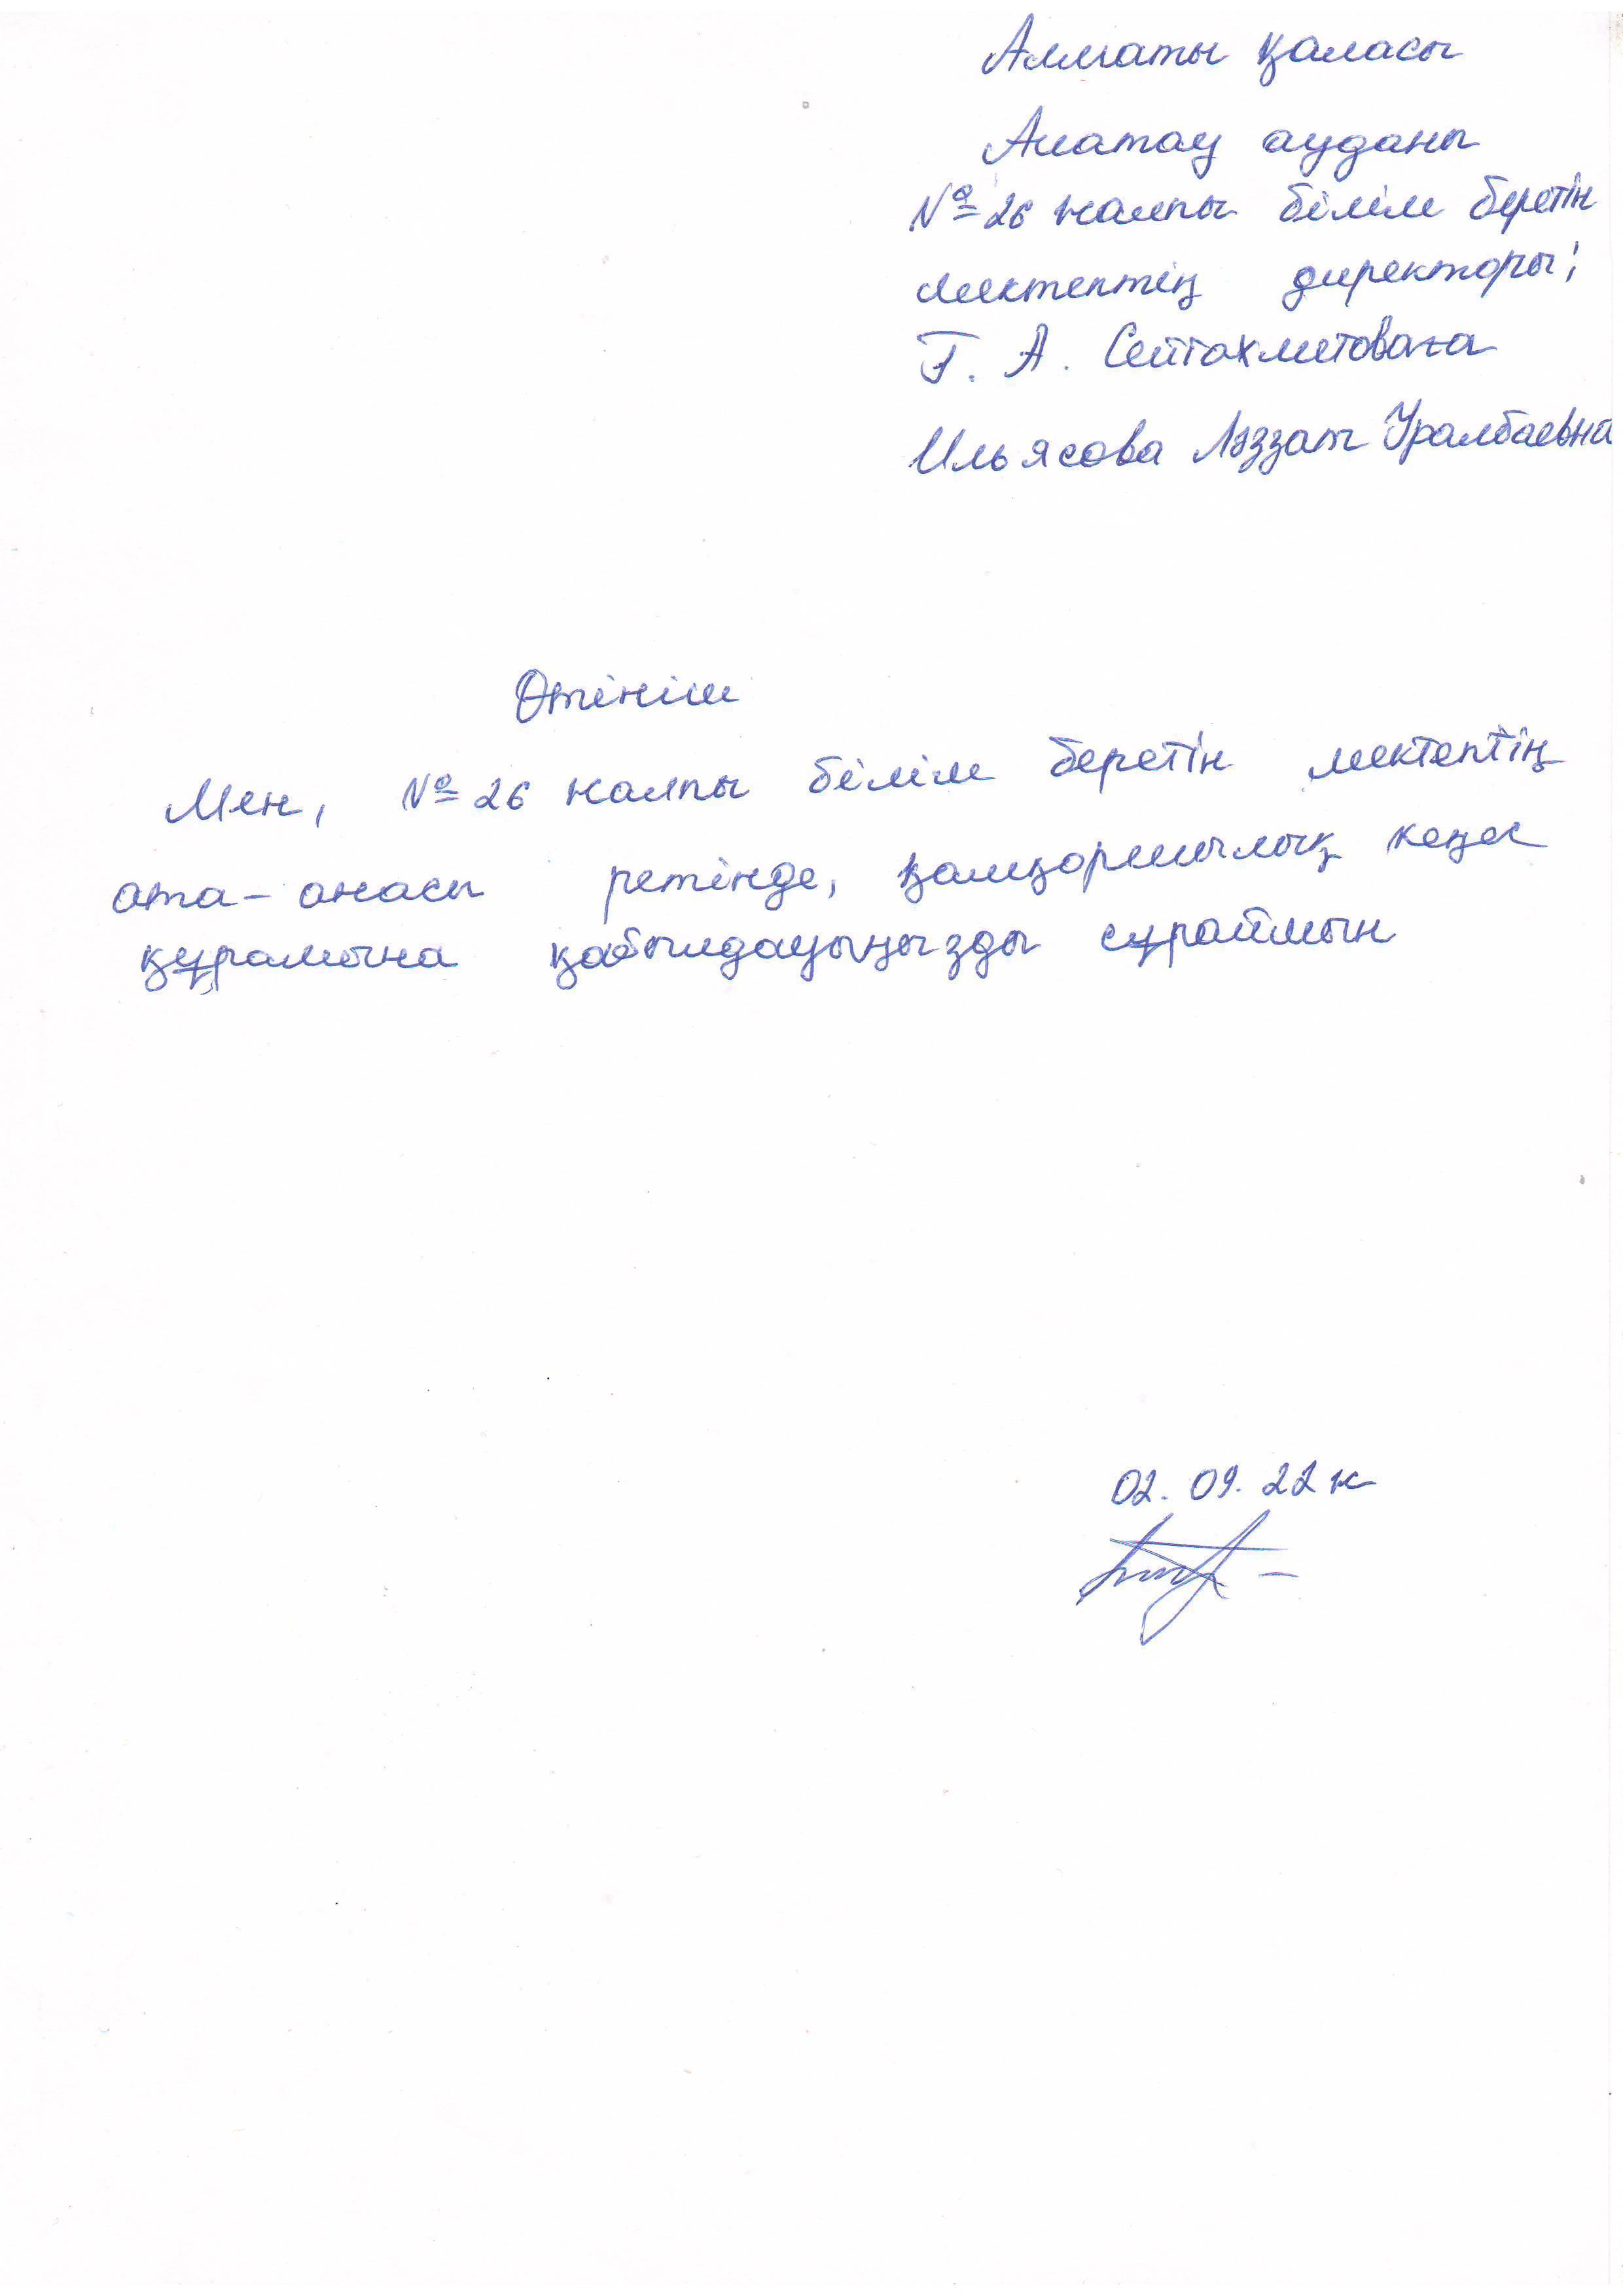 Алматы қаласы
Алатау ауданы
№ 26 жалпы білім беретін
мектептің директоры;
Г. А. Сейтахметоваға
Ильясова Ләззат Уралбаевна
Өтініш
Мен, № 26 жалпы білім беретін мектептің
ата-анасы ретінде, қамқоршылық кеңес
құрамына қабылдауыңызды сұраймын
02. 09. 22 ж